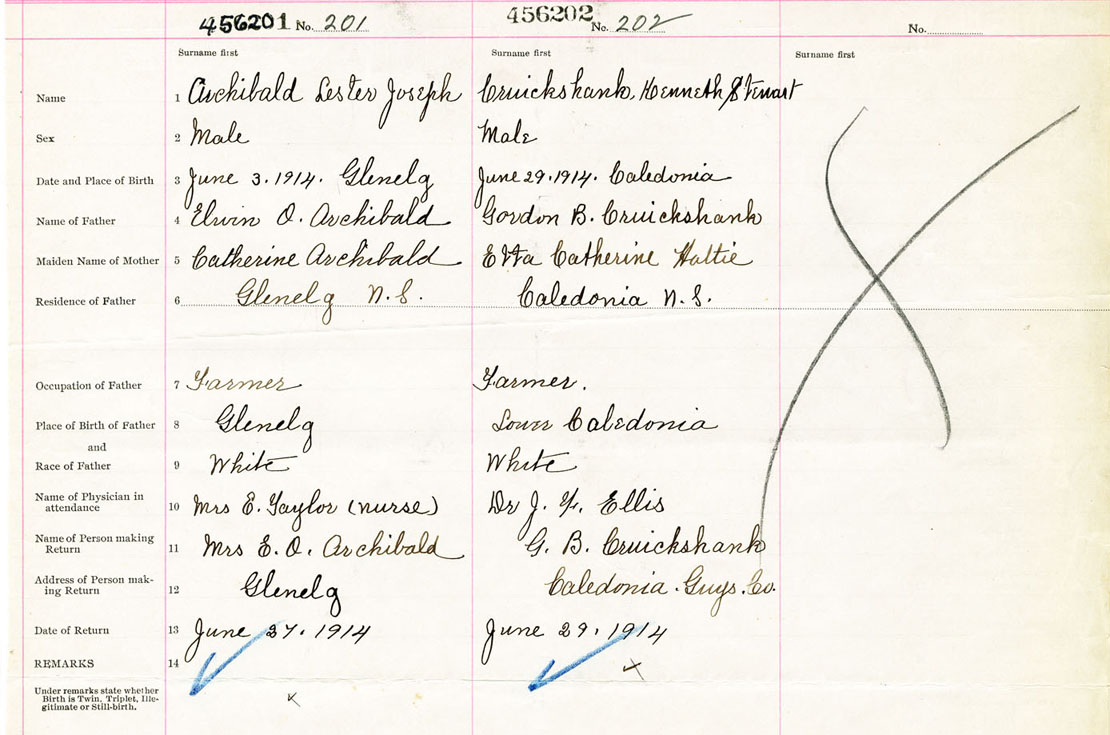 456201 No. 201 456202 No. 202 No.
Surname first Surname first Surname first
Name 1 Archibald Lester Joseph Cruickshank, Kenneth Stewart
Sex 2 Male Male
Date and Place of Birth 3 June 3. 1914. Glenelg June 29. 1914. Caledonia
Name of Father 4 Elwin O. Archibald Gordon B. Cruickshank
Maiden Name of Mother 5 Catherine Archibald Etta Catherine Hattie
Residence of Father 6 Glenelg N.S. Caledonia N.S.
Occupation of Father 7 Farmer Farmer.
Place of Birth of Father 8 Glenelg Lower Caledonia
and
Race of Father 9 White White
Name of Physician in
attendance 10 Mrs E. Taylor (nurse) Dr J. F. Ellis
Name of Person making
Return 11 Mrs E. O. Archibald G. B. Cruickshank
Address of Person mak-
ing Return 12 Glenelg Caledonia. Guys. Co.
Date of Return 13 June 27. 1914 June 29. 1914
REMARKS 14
Under remarks state whether
Birth is Twin, Triplet, Ille-
gitimate or Still-birth.